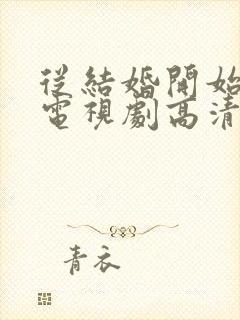 從結婚開始
電視劇高清
青衣